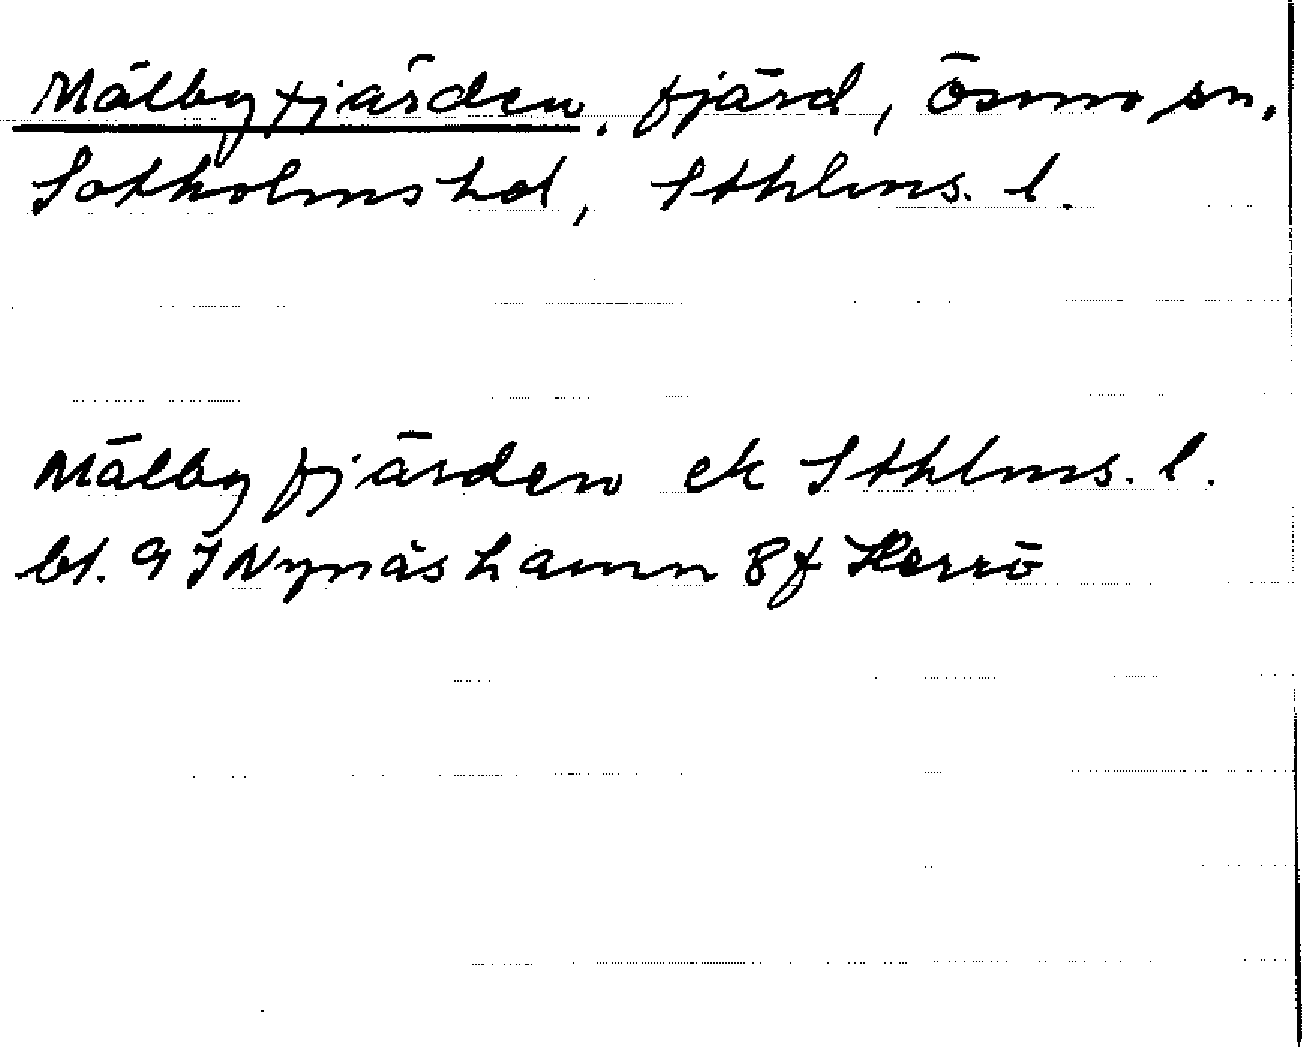 Målbyfjärden, fjärd, Ösmo sn,
Sotholms hd, Sthlms. l.
Målbyfjärden ek Sthlms. l.
bl. 9 I Nynäshamn 8f Herrö